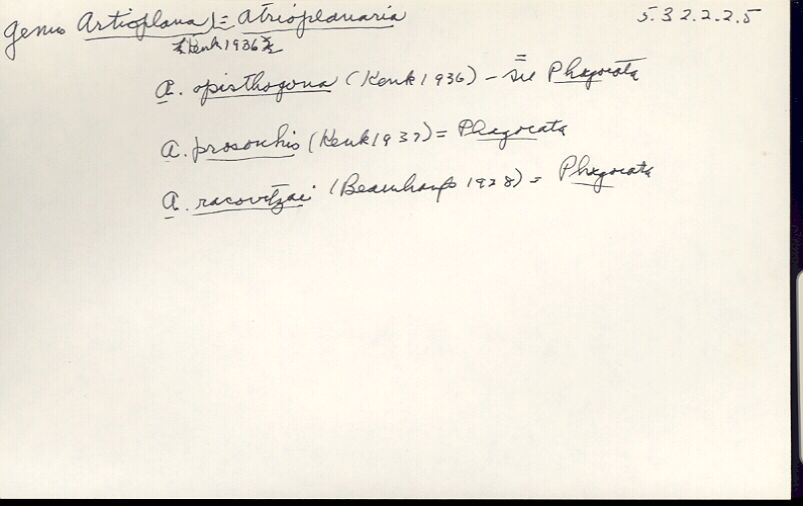 Genus Artioplana != Atrioplanaria 5.32.2.2.5
*Kenk 1936*
A. opisthogona (Kenk 1936) - = see Phagocata
A. prosorchis (Kenk 1937) = Phagocata
A. racovitzai (Beauchamp 1928) = Phagocata